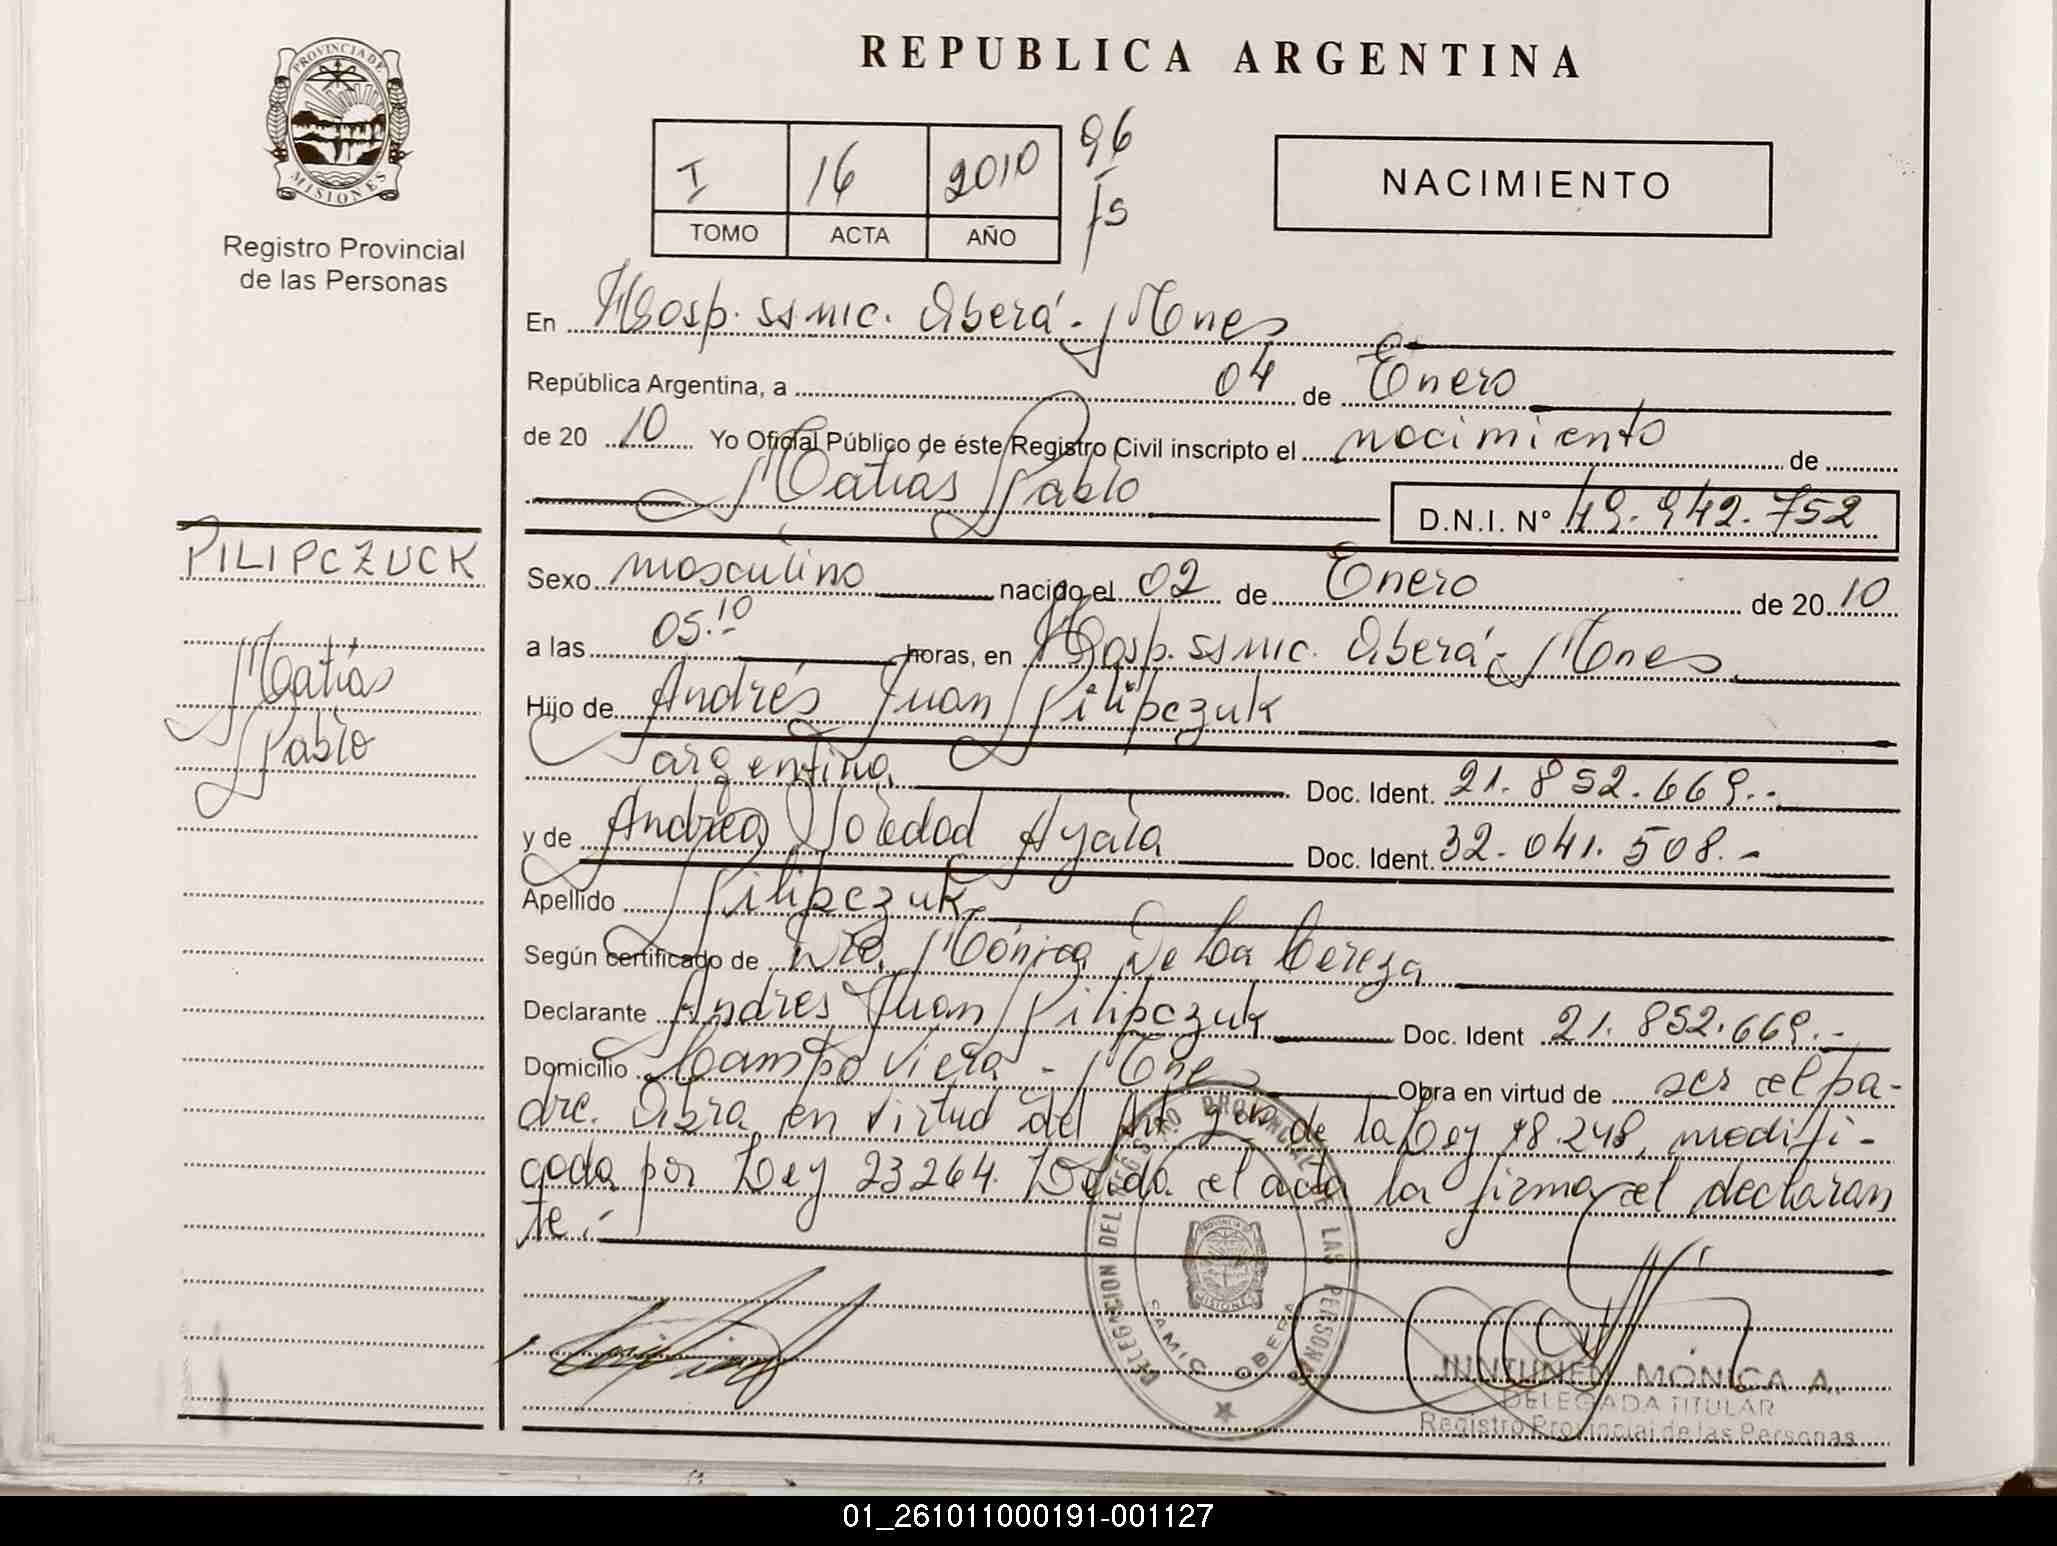 PROVINCIA DE
MISIONES
Registro Provincial
de las Personas
REPUBLICA ARGENTINA
I 16 2010 96
TOMO ACTA AÑO fs
NACIMIENTO
En Hosp. ssmic. Oberá - Mnes
República Argentina, a 04 de Enero
de 20 10 Yo Oficial Público de éste Registro Civil inscripto el nacimiento de
Matías Pablo D.N.I. N° 49.942.752
PILIPCZUCK
Matías
Pablo
Sexo masculino nacido el 02 de Enero de 20 10
a las 05.10 horas, en Hosp. ssmic. Oberá - Mnes
Hijo de Andrés Juan Pilipczuk
argentino Doc. Ident. 21.852.669.-
y de Andrea Soledad Ayala Doc. Ident. 32.041.508.-
Apellido Pilipczuk
Según certificado de Dra. Mónica De La Cereza
Declarante Andres Juan Pilipczuk Doc. Ident 21.852.669.-
Domicilio Campo Viera - Mnes Obra en virtud de ser el pa-
dre. Obra en virtud del Art. de la Ley 18.248, modifi-
cada por Ley 23264. Leída el acta la firma el declaran
te.-
DELEGACION DEL REGISTRO PROVINCIAL DE LAS PERSONAS
PROVINCIA DE
MISIONES
SAMIC OBERA
JUNTUNEN MÓNICA A.
DELEGADA TITULAR
Registro Provincial de las Personas
01_261011000191-001127